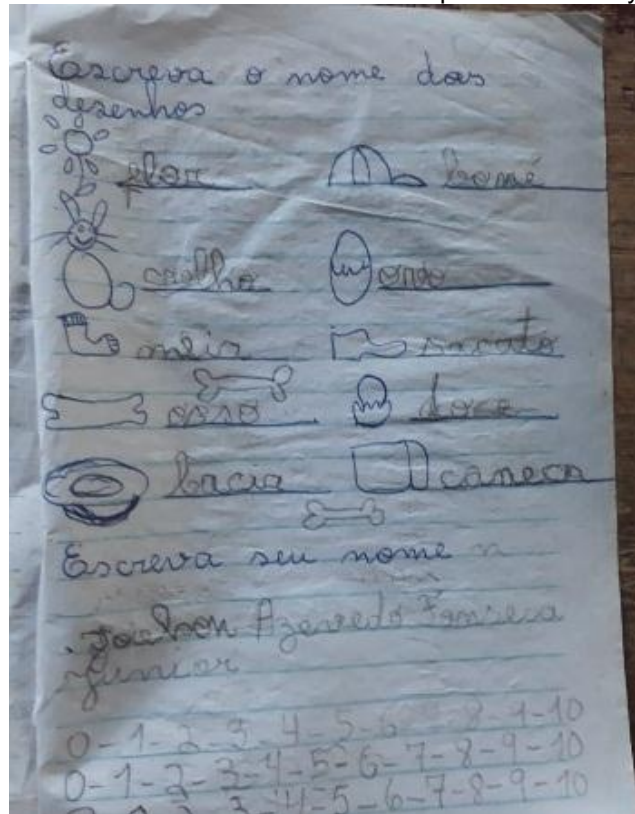 Escreva o nome dos
desenhos
flor boné
coelho ovo
meia sacato
osso doce
bacia caneca
Escreva seu nome
Azevedo Fonseca
Junior
0-1-2-3-4-5-6 8-9-10
0-1-2-3-4-5-6-7-8-9-10
3-4-5-6-7-8-9-10